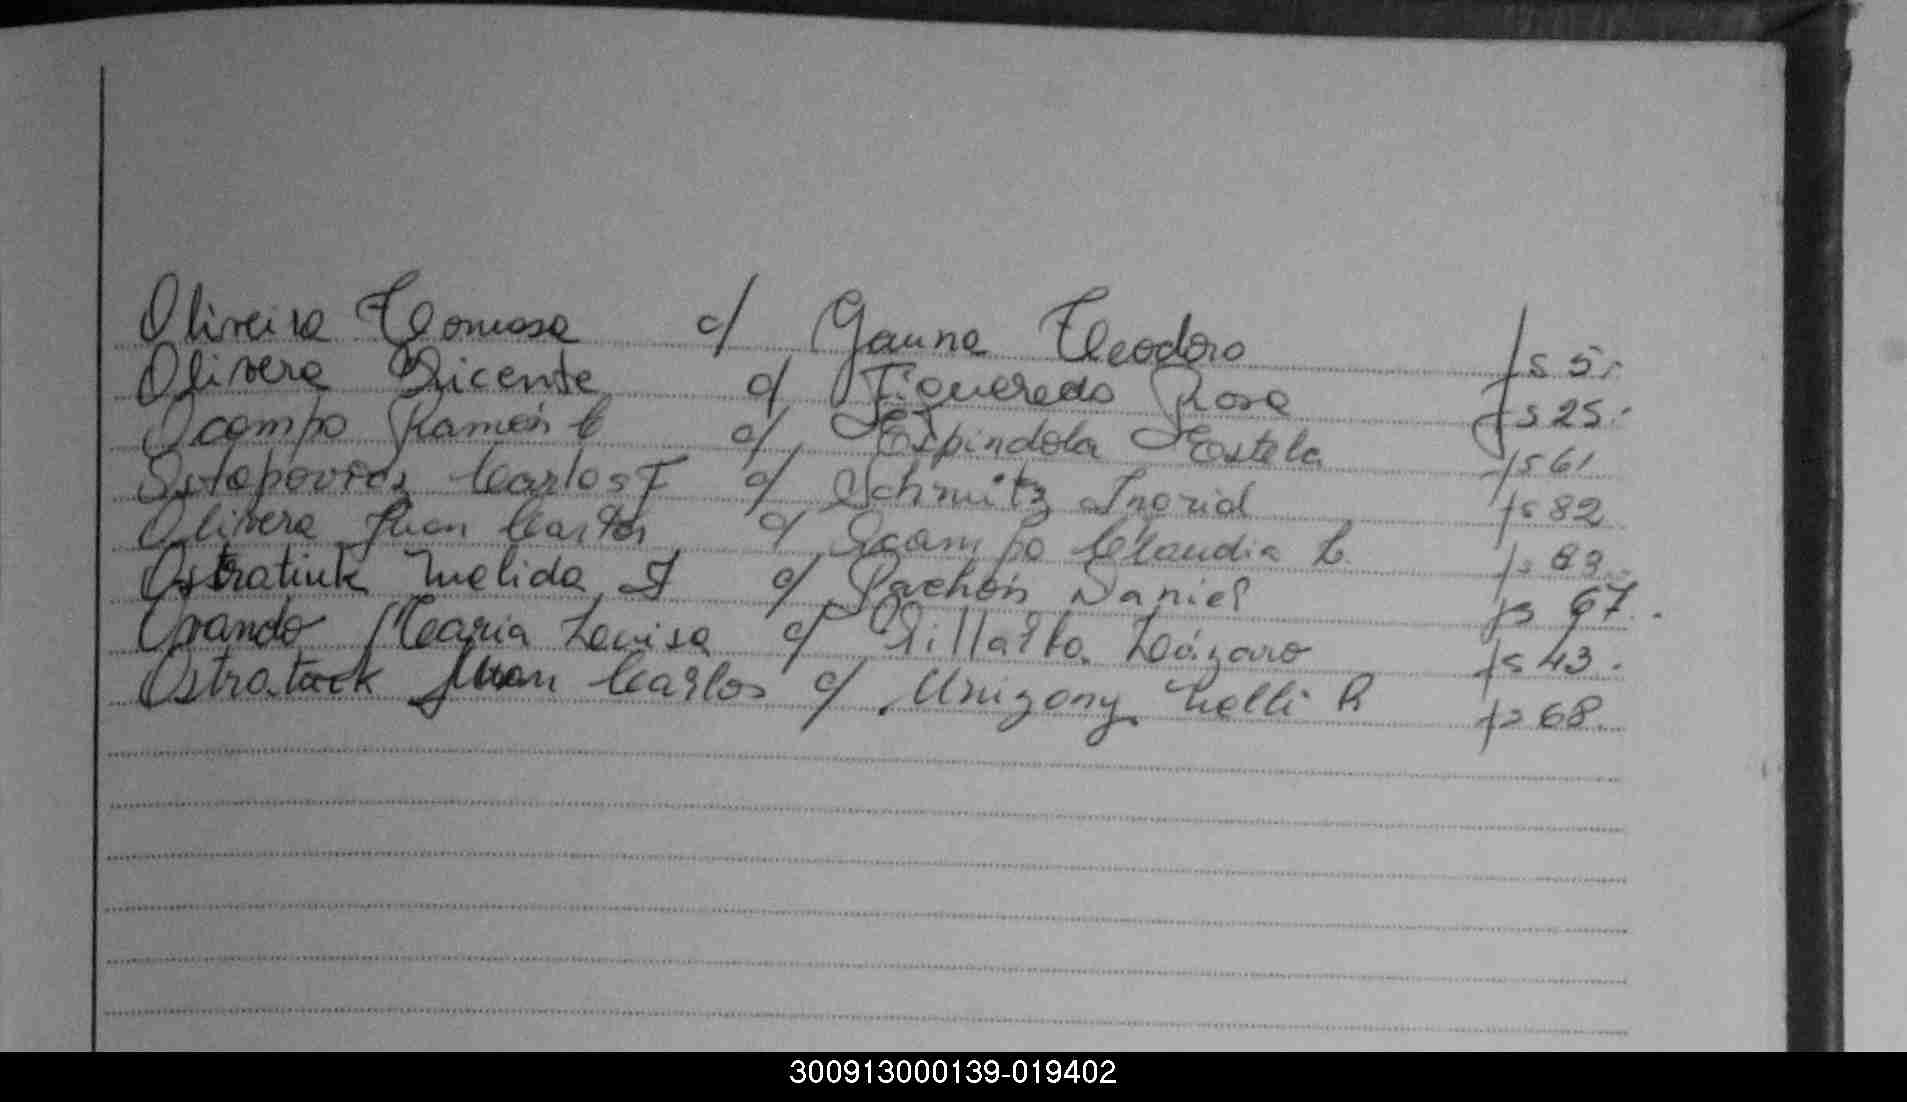 Oliveira Tomasa c/ Gauna Teodoro fs 5.
Olivera Vicente c/ Figueredo Rosa fs 25.
Ocampo Ramón C c/ Espindola Estela fs 61
Carlos F c/ Schmitz Ingrid fs 82
Olivera Juan Carlos c/ Ocampo Claudia L. fs 83.
Ostratiuk Nelida c/ Pachon Daniel fs 67.
Obando Maria Luisa c/ Villalba Lázaro fs 43.
Juan Carlos c/ Nelli R fs 68.
300913000139-019402